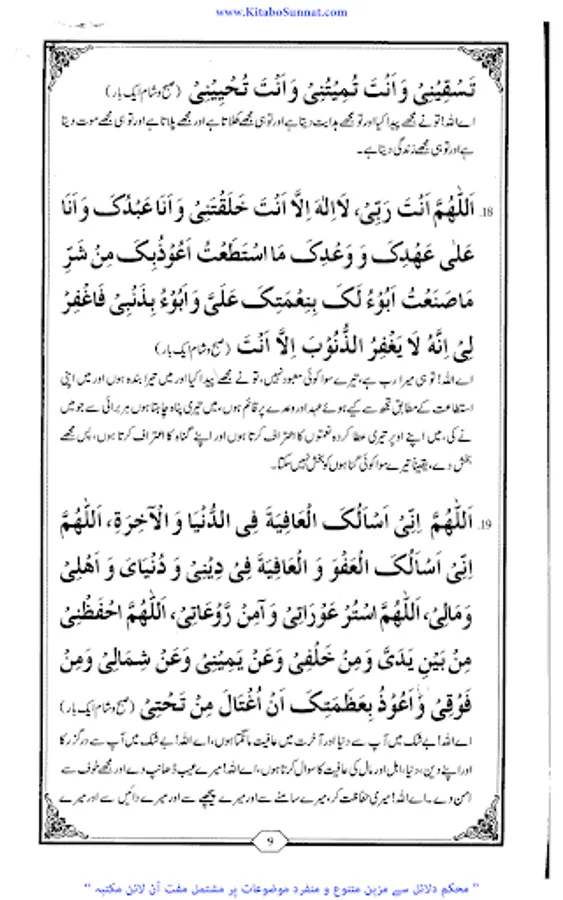 www.KitaboSunnat.com
تَسْقِيْنِىْ وَاَنْتَ تُمِيْتُنِىْ وَاَنْتَ تُحْيِيْنِىْ (صبح وشام ایک بار)
اے اللہ! تو نے مجھے پیدا کیا اور تو مجھے ہدایت دیتا ہے اور تو ہی مجھے کھلاتا ہے اور مجھے پلاتا ہے اور تو ہی مجھے موت دیتا
ہے اور تو ہی مجھے زندگی دیتا ہے۔
18. اَللّٰهُمَّ اَنْتَ رَبِّىْ، لَااِلٰهَ اِلَّا اَنْتَ خَلَقْتَنِىْ وَاَنَا عَبْدُكَ وَاَنَا
عَلٰى عَهْدِكَ وَ وَعْدِكَ مَا اسْتَطَعْتُ اَعُوْذُبِكَ مِنْ شَرِّ
مَاصَنَعْتُ اَبُوْءُ لَكَ بِنِعْمَتِكَ عَلَىَّ وَاَبُوْءُ بِذَنْبِىْ فَاغْفِرْ
لِىْ اِنَّهُ لَا يَغْفِرُ الذُّنُوْبَ اِلَّا اَنْتَ (صبح وشام ایک بار)
اے اللہ! تو ہی میرا رب ہے، تیرے سوا کوئی معبود نہیں، تو نے مجھے پیدا کیا اور میں تیرا بندہ ہوں اور میں اپنی
استطاعت کے مطابق تجھ سے کیے ہوئے عہد اور وعدے پر قائم ہوں، میں تیری پناہ چاہتا ہوں ہر برائی سے جو میں
نے کی، میں اپنے اوپر تیری عطا کردہ نعمتوں کا اعتراف کرتا ہوں اور اپنے گناہ کا اعتراف کرتا ہوں، پس مجھے
بخش دے، یقیناً تیرے سوا کوئی گناہوں کو بخش نہیں سکتا۔
19. اَللّٰهُمَّ اِنِّىْ اَسْاَلُكَ الْعَافِيَةَ فِى الدُّنْيَا وَ الْاٰخِرَةِ، اَللّٰهُمَّ
اِنِّىْ اَسْاَلُكَ الْعَفْوَ وَ الْعَافِيَةَ فِىْ دِيْنِىْ وَ دُنْيَاىَ وَ اَهْلِىْ
وَمَالِىْ، اَللّٰهُمَّ اسْتُرْ عَوْرَاتِىْ وَآمِنْ رَّوْعَاتِىْ، اَللّٰهُمَّ احْفَظْنِىْ
مِنْ بَيْنِ يَدَىَّ وَمِنْ خَلْفِىْ وَعَنْ يَمِيْنِىْ وَعَنْ شِمَالِىْ وَمِنْ
فَوْقِىْ وَاَعُوْذُ بِعَظَمَتِكَ اَنْ اُغْتَالَ مِنْ تَحْتِىْ (صبح وشام ایک بار)
اے اللہ! بے شک میں آپ سے دنیا اور آخرت میں عافیت مانگتا ہوں، اے اللہ! بے شک میں آپ سے درگزر کا
اور اپنے دین، دنیا، اہل اور مال کی عافیت کا سوال کرتا ہوں، اے اللہ! میرے عیب ڈھانپ دے اور مجھے خوف سے
امن دے۔ اے اللہ! میری حفاظت کر، میرے سامنے سے اور میرے پیچھے سے اور میرے دائیں سے اور میرے
9
" محکم دلائل سے مزین متنوع و منفرد موضوعات پر مشتمل مفت آن لائن مکتبہ "